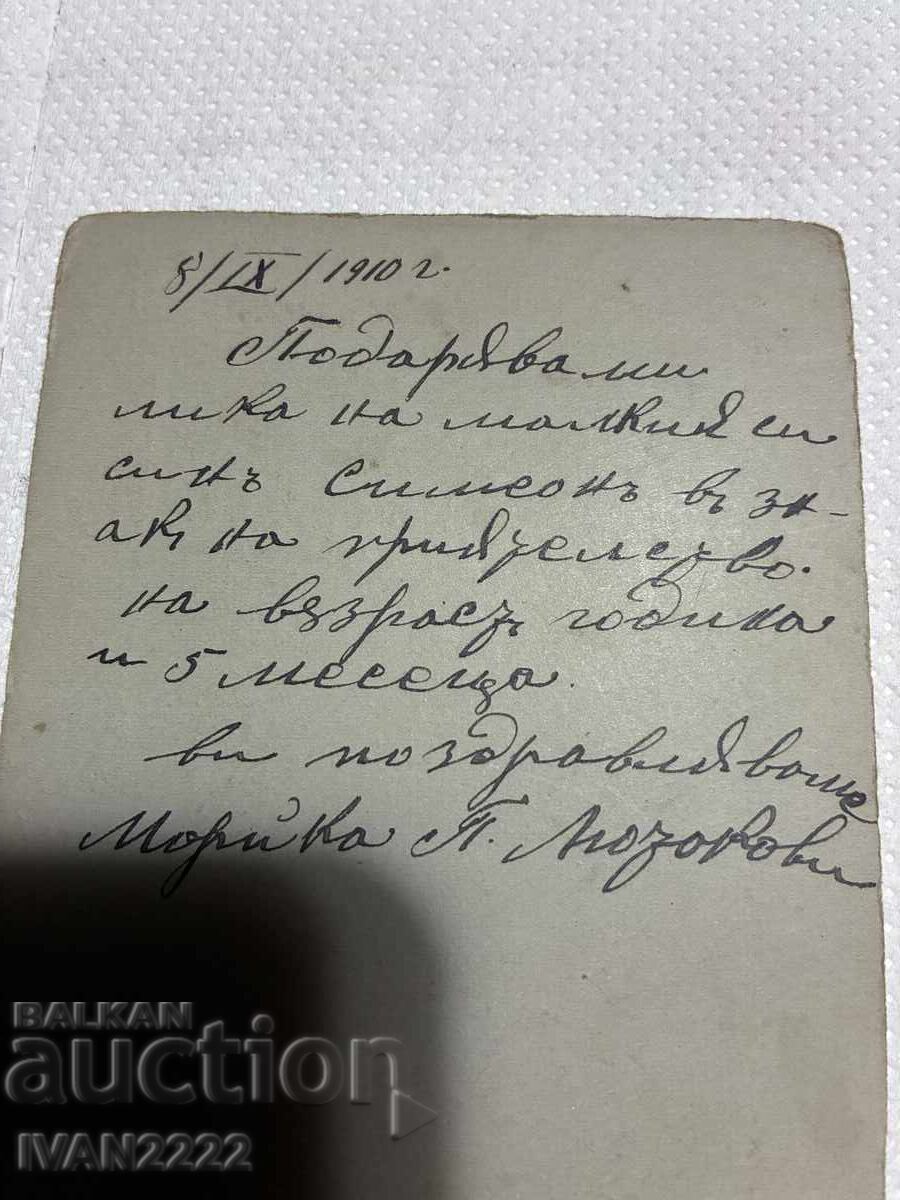 8/IX/1910 г.
Подарявами
лика на малкия си
синъ Симеонъ въ зн-
акъ на приятелство.
на възрастъ годика
и 5 месеца.
ви поздравляваме
Марийка П. Люзакови
BALKAN
auction
IVAN2222